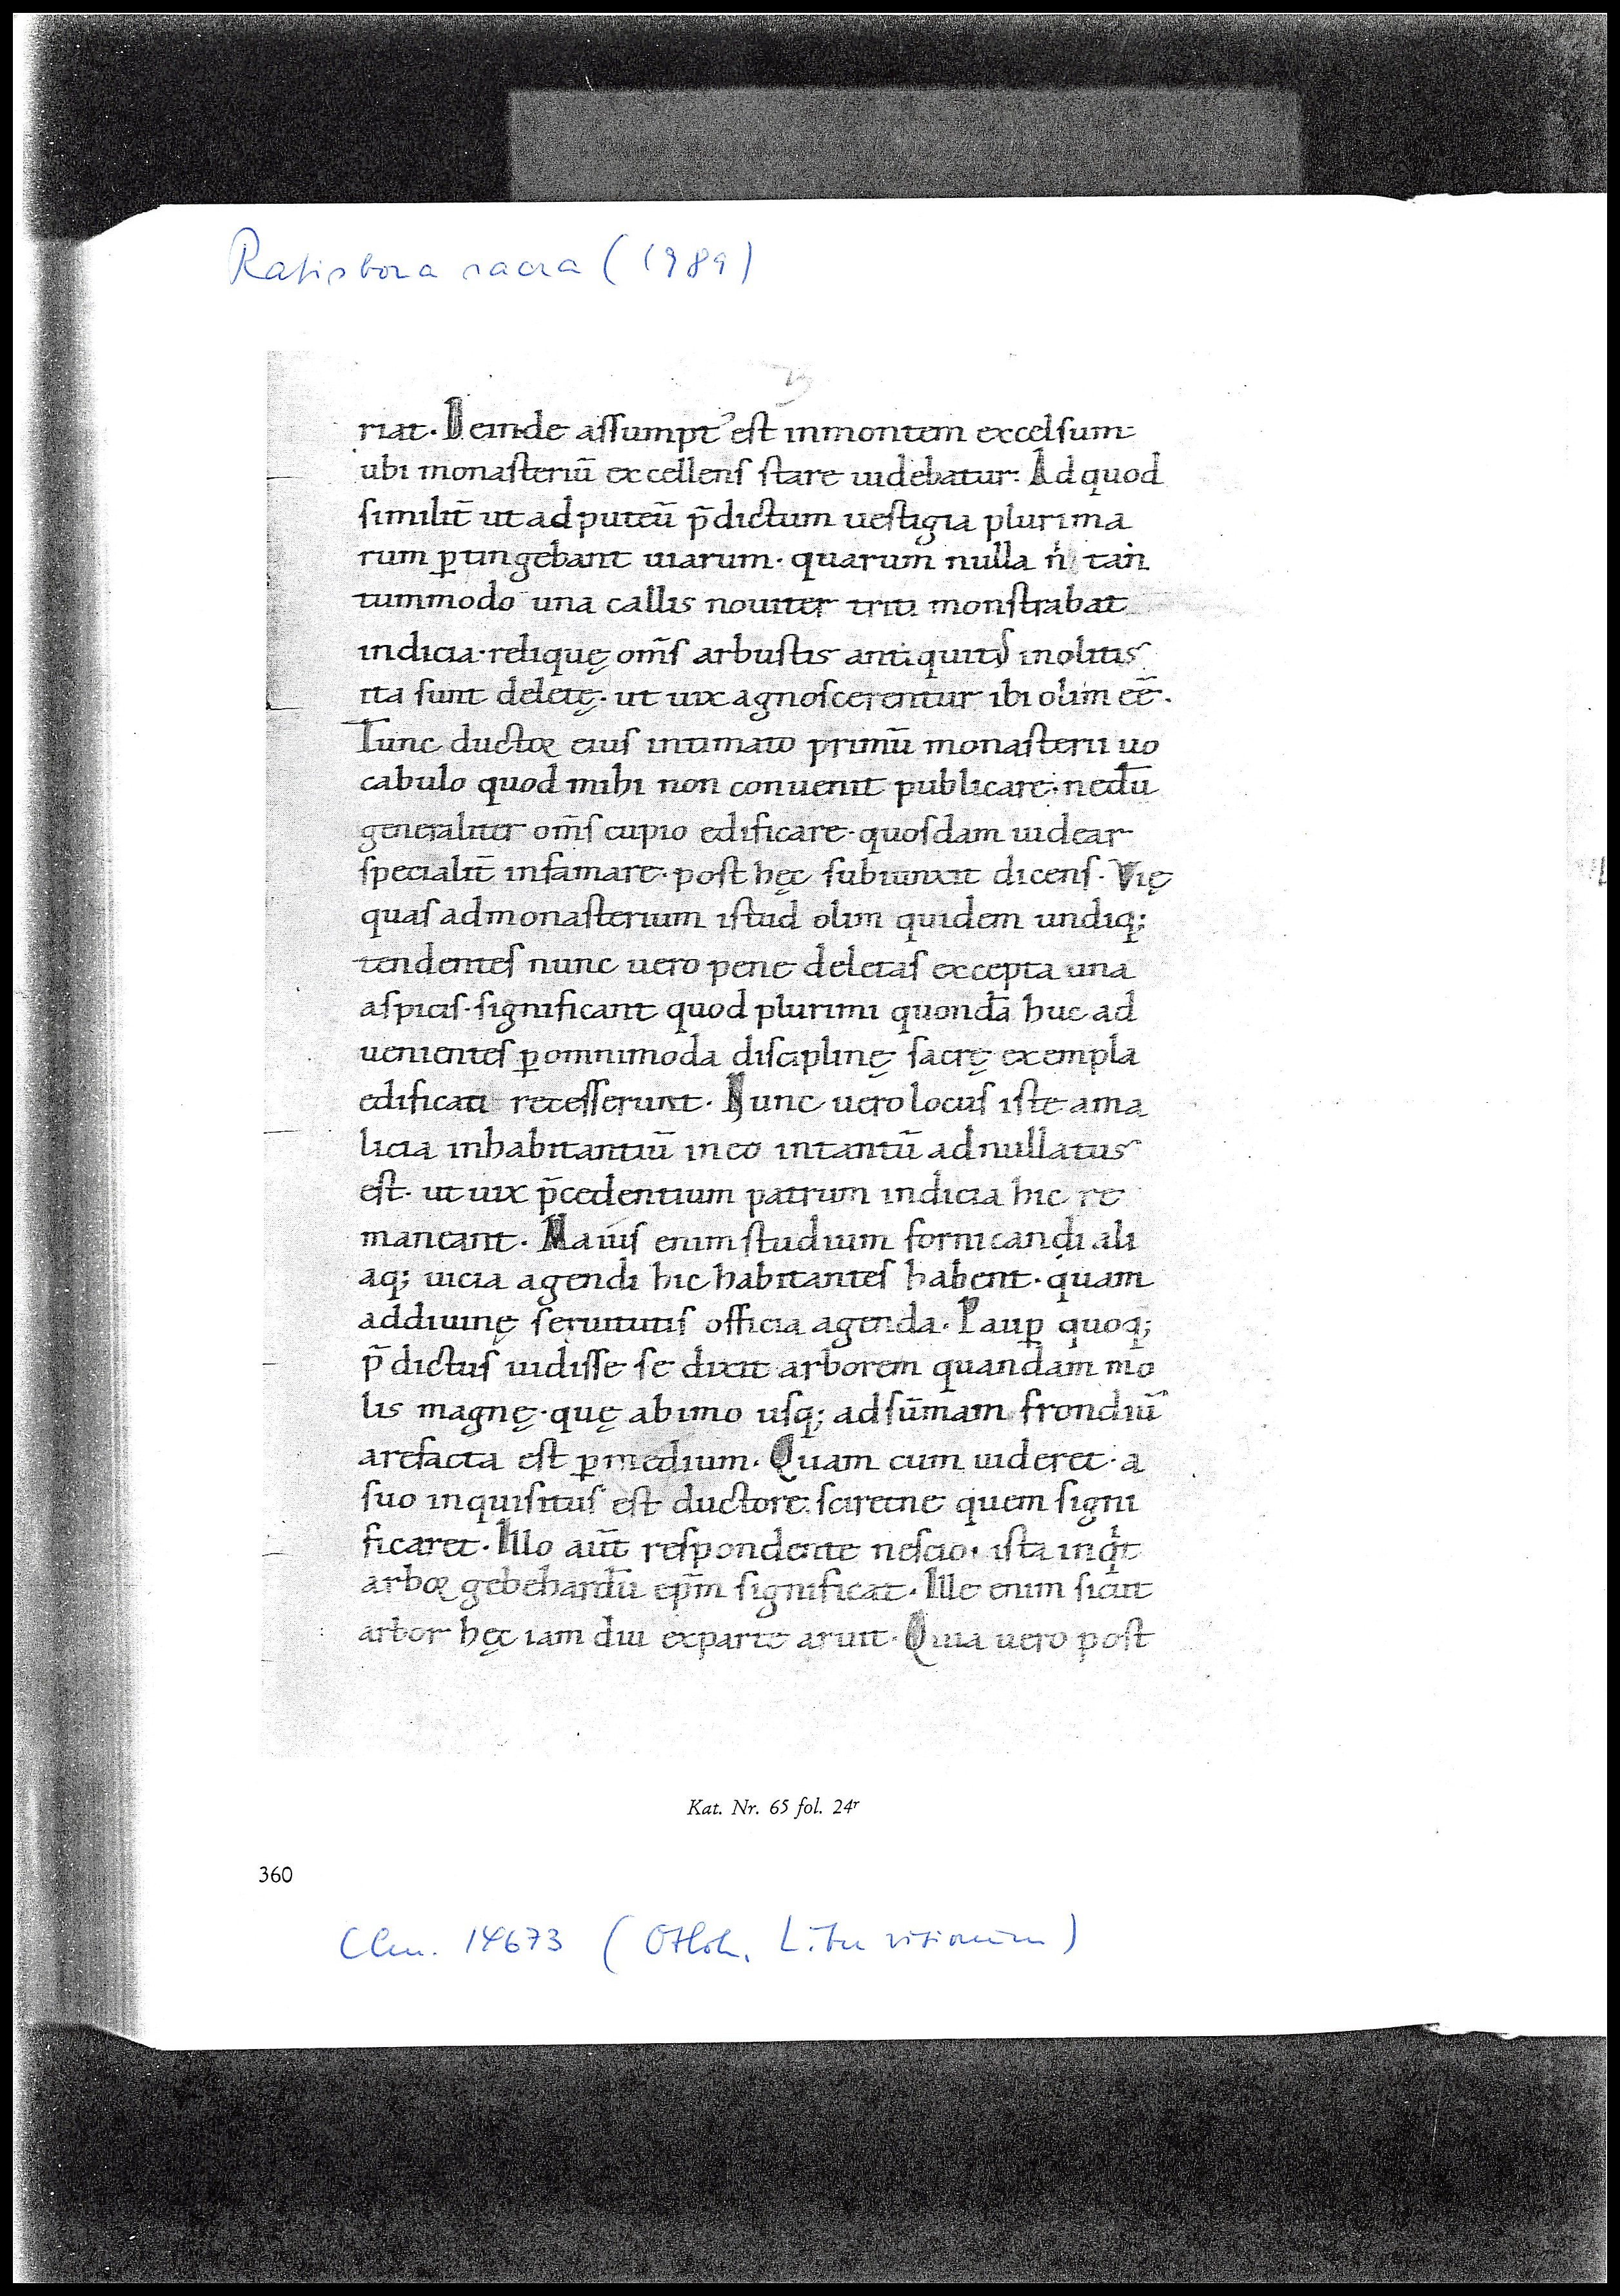 Ratisbona sacra (1989)
riat. Deinde aſſumpt᾿ eſt inmontem excelſum:
ubi monaſteriū excellenſ ſtare uidebatur. Ad quod
ſimilit̄ ut ad puteū p̄dictum ueſtigia plurima
rum ꝑtingebant uiarum. quarum nulla tan
tummodo una callis nouiter triti monſtrabat
indicia. reliquę om̄ſ arbuſtis antiquitꝰ inolitis
ita ſunt deletę. ut uix agnoſcerentur ibi olim eē.
Tunc ductor eiuſ intimato primū monaſterii uo
cabulo quod mihi non conuenit publicare. nedū
generaliter om̄ſ cupio edificare. quoſdam uidear
ſpecialit̄ infamare. poſt hęc ſubiunxit dicenſ. Vię
quaſ ad monaſterium iſtud olim quidem undiq;
tendenteſ nunc uero pene deletaſ excepta una
aſpiciſ. ſignificant quod plurimi quondā huc ad
uenienteſ ꝑ omnimoda diſciplinę ſacrę exempla
edificati receſſerunt. Nunc uero locuſ iſte ama
licia inhabitantiū in eo intantū adnullatus
eſt. ut uix p̄cedentium patrum indicia hic re
maneant. Maiuſ enim ſtudium fornicandi ali
aq; uicia agendi hic habitanteſ habent. quam
ad diuinę ſeruitutiſ officia agenda. Pauꝑ quoq;
p̄dictuſ uidiſſe ſe dixit arborem quandam mo
lis magnę. quę ab imo uſq; ad ſūmam frondiū
arefacta eſt ꝑ medium. Quam cum uideret. a
ſuo inquiſituſ eſt ductore. ſciretne quem ſigni
ficaret. Illo aūt reſpondente neſcio. iſta inqͥt
arbor gebehardū ep̄m ſignificat. Ille enim ſicut
arbor hęc iam diu exparte aruit. Quia uero poſt
Kat. Nr. 65 fol. 24r
360
Clm. 14673 (Otloh. Liber visionum)